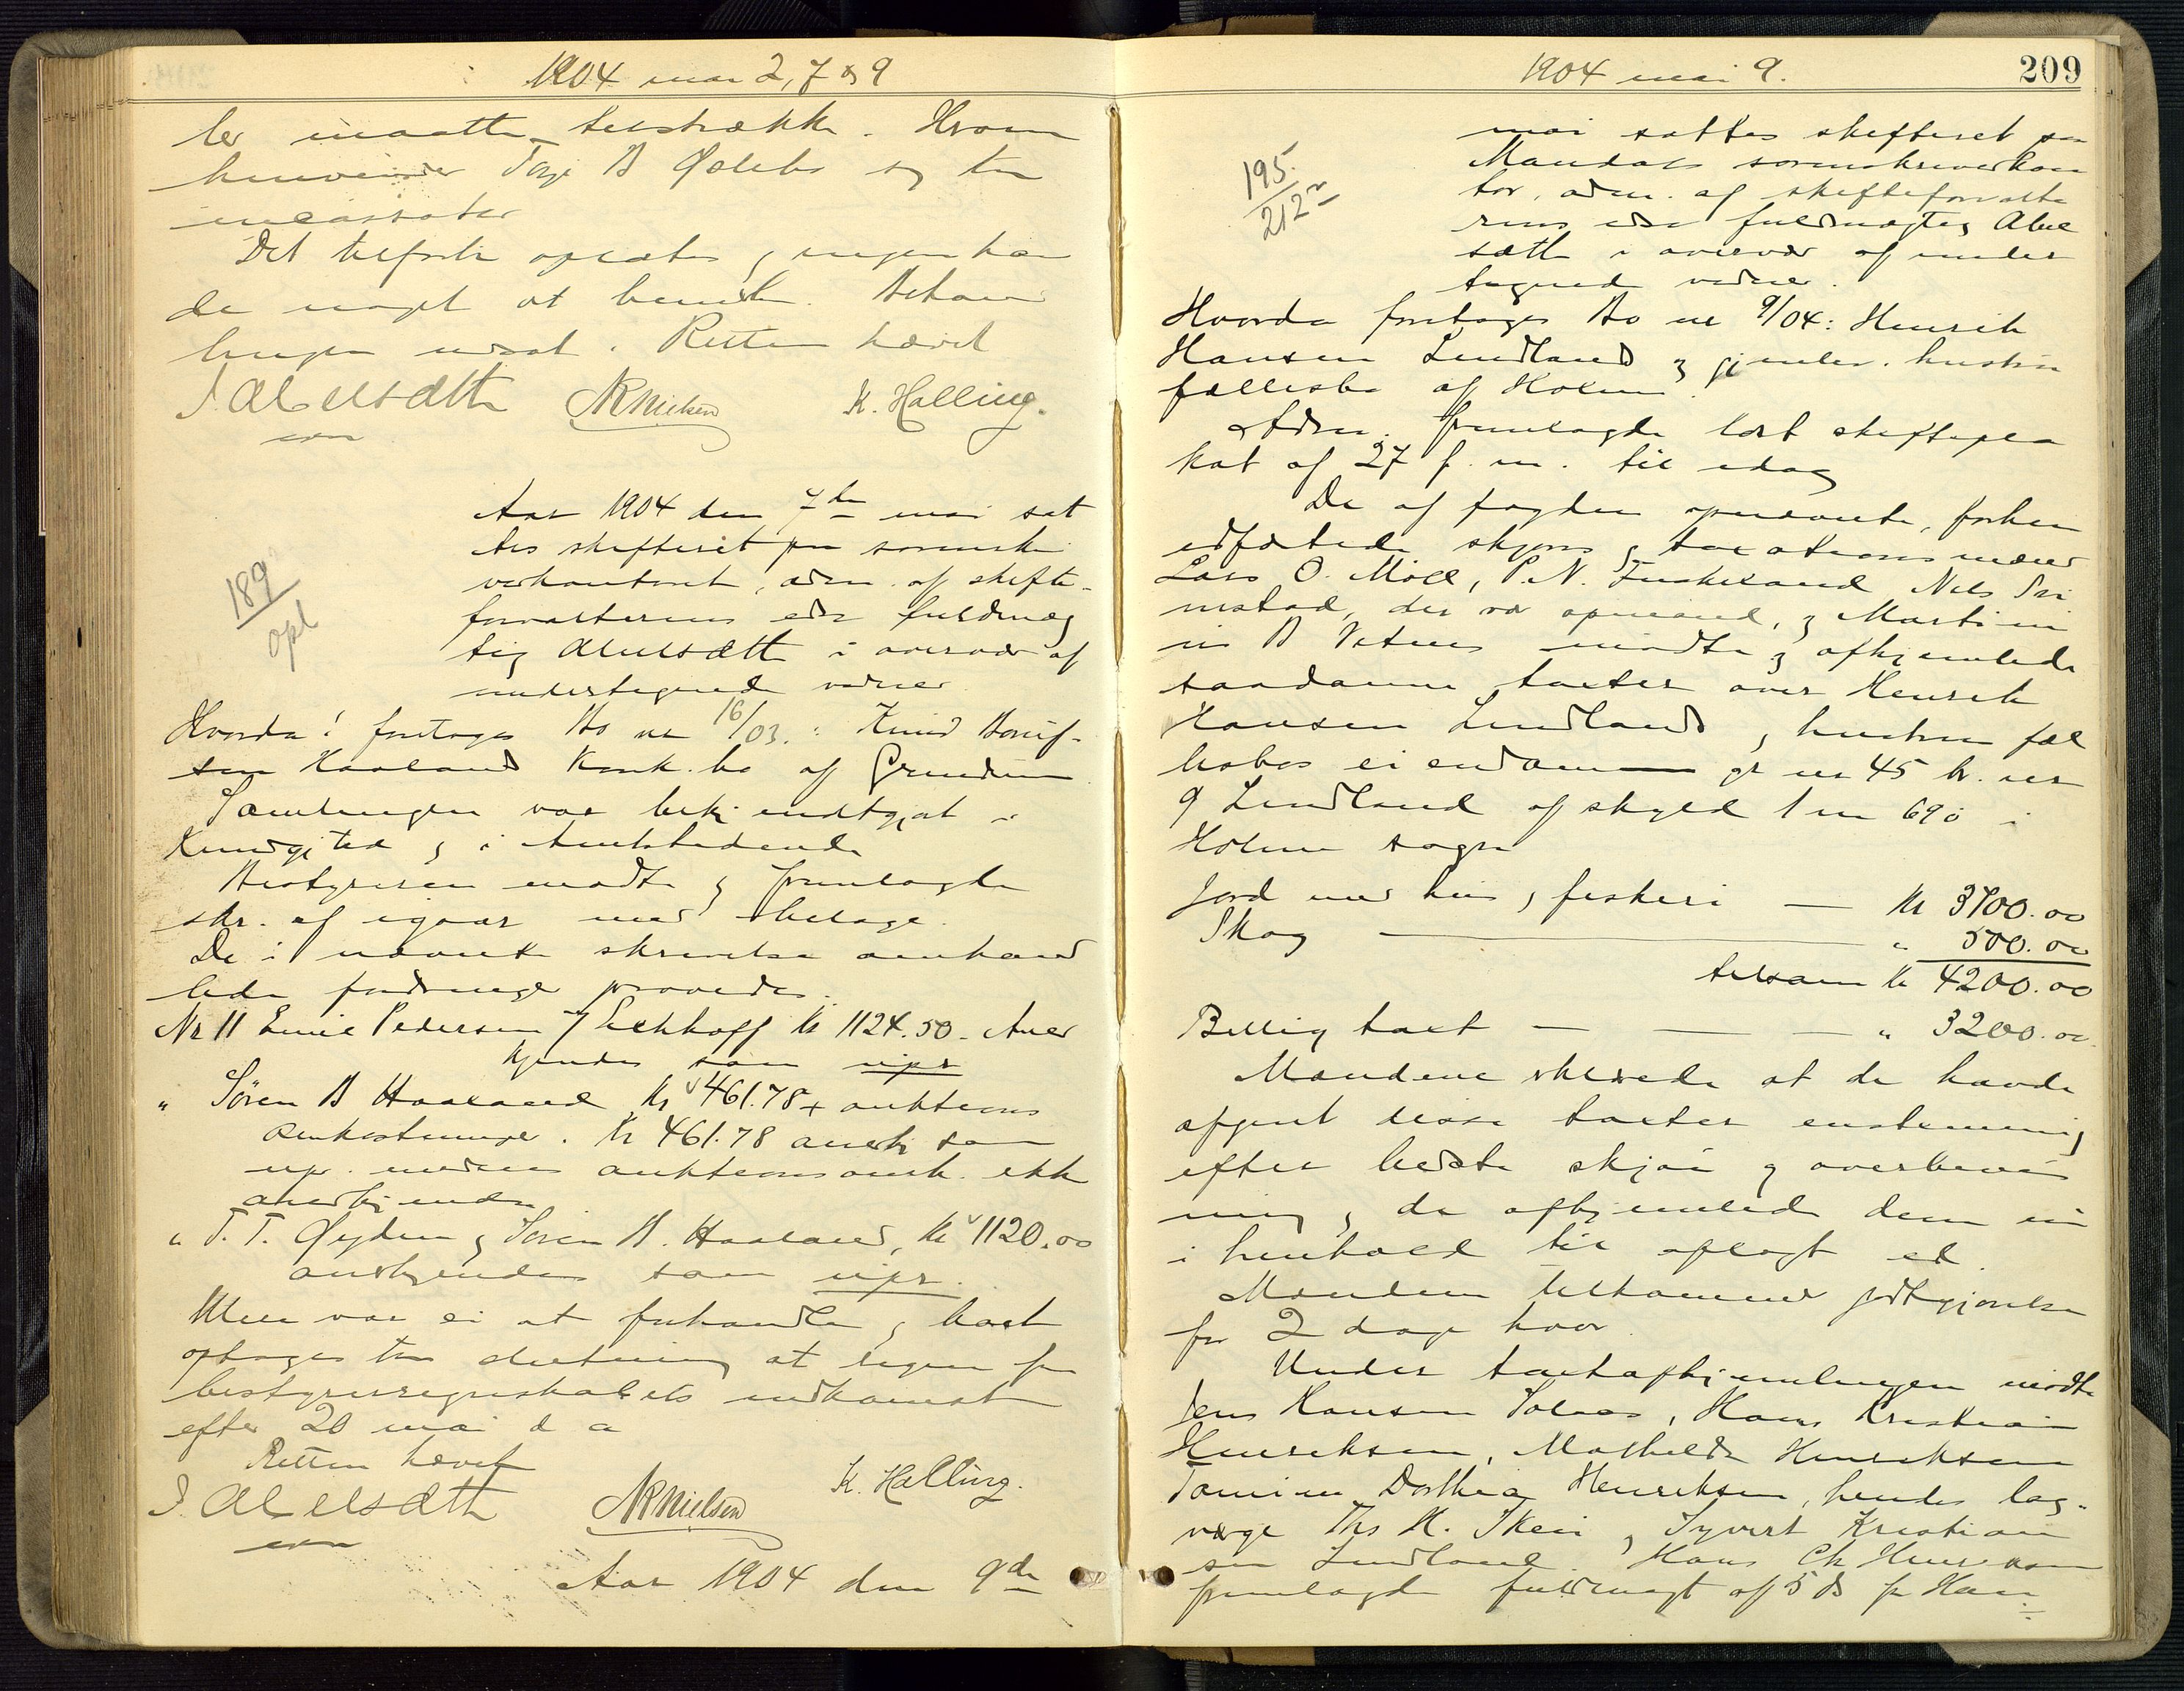 1904 mai 2, 7 og 9
ler maatte tilstrække. Hvorom
henvender Terje B Øslebø sig til
incassator
Det tilførte oplæstes og ingen hav
de noget at bemerke. Behand
lingen udsat. Retten hævet
J. Abelsæth NKNielsen K. Halling.
con
Aar 1904 den 7de mai sat
tes skifteret paa sorenskri
verkontoret, adm. af skifte-
forvalterens edsv fuldmæg
tig Abelsæth i overvær af
undertegnede vidner
189
opl
Hvorda: foretoges Bo nr 16/03. : Knud
sen Haaland konk.bo af Grindum
Samlingen var bekjendtgjort i
Kundgj.tid og i Amtstidende
Bestyreren mødte og fremlagde
skr. af igaar med bilage.
De i nævnte skrivelse omhand
lede fordringer prøvedes.
Nr 11 Emil Pedersen Kr 1124.50. Aner
kjendes som upr
" Søren B Haaland Kr 461.78 + auktions
omkostninger. Kr 461.78 anerkj som
upr. medens auktionsomk. ikke
anerkjendes
" T. T. Øyden og Søren B. Haaland, Kr 1120.00
anerkjendes som upr.
Mere var ei at forhandle og boet
optoges til slutning at regne fra
bestyrerregnskabets indkomst
efter 20 mai d a
Retten hævet
J. Abelsæth NKNielsen K. Halling.
con
Aar 1904 den 9de
1904 mai 9.
209
195.
212
mai sattes skifteret paa
Mandals sorenskriverkon
tor, adm. af skifteforvalte
rens edsv fuldmægtig Abel
sæth i overvær af under
tegnede vidner.
Hvorda foretoges Bo nr 9/04: Henrik
Hansen Lindland og gjenlev. hustru
fællesbo af Holum.
Adm. fremlagde læst skiftepla
kat af 27 f. m. til idag
De af fogden opnævnte, forhen
edfæstede skjøns og taxationsmænd
Lars O. Möll, P. N. Nils Tri
mstad, der var opmand, og Marti
B Vetnes mødte og afhjemlede
saadanne taxter over Henrik
Hansen Lindland og hustrus fæl
lesbos eiendom gr nr 45 br. nr
9 Lindland af skyld 1 m 69 ö i
Holum sogn
Jord med hus og fiskeri — Kr 3700.00
Skog — " 500.00
tilsam Kr 4200.00
Billig taxt — — — " 3200.00
Mændene erklærede at de havde
afgivet disse taxter enstemmig
efter bedste skjön og overbevis
ning og de afhjemlede dem nu
i henhold til aflagt ed.
Mændene tilkommer godtgjørelse
for 2 dage hver.
Under taxtafhjemlingen mødte
Jens Hansen Solaas, Hans Kristian
Henriksen, Mathilde Henriksen
Tomine Dorthea Henriksen, hendes lag-
verge Ths H. Skeie og Syvert Kristian
sen Lindland. Hans Chr Henriksen
fremlagde fuldmagt af 5 ds fra Han-